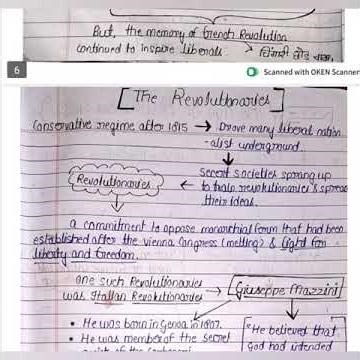 But, the memory of French Revolution
continued to inspire liberals
6
Scanned with OKEN Scanner
[The Revolutionaries]
Conservative regime after 1815 → Drove many liberal nation
-alist underground.
Secret societies sprang up
to train revolutionaries & spread
their ideas.
Revolutionaries
a commitment to oppose monarchial form that had been
established after the vienna Congress (meeting) & fight for
liberty and freedom.
one such Revolutionaries
was Itallan Revolutionaries → Giuseppe Mazzini
• He was born in Genoa in 1807.
• He was member of the secret
"He believed that
God had intended